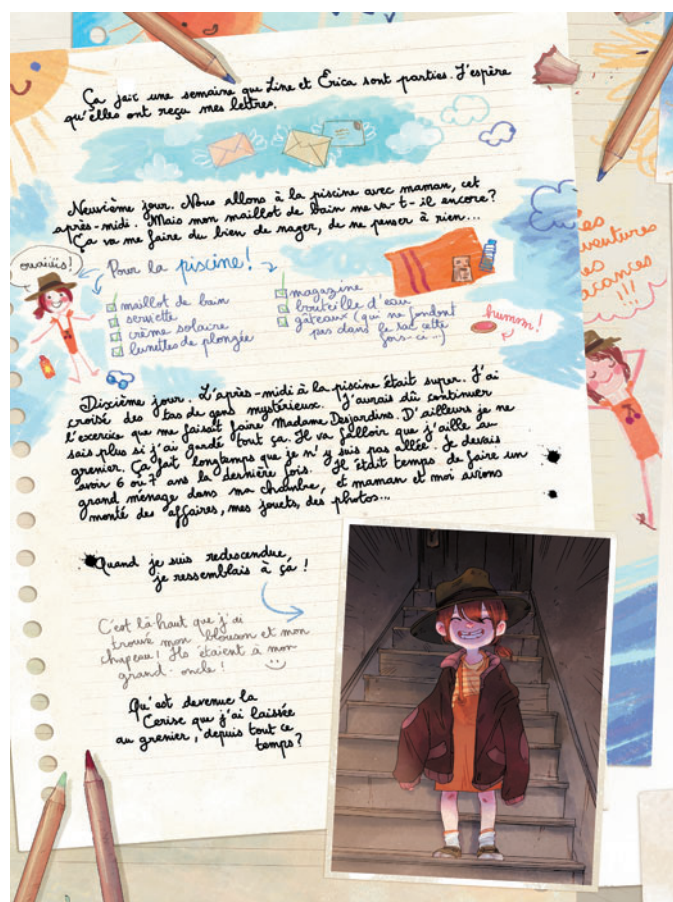 Ça fait une semaine que Line et Erica sont parties. J'espère
qu'elles ont reçu mes lettres.
Neuvième jour. Nous allons à la piscine avec maman, cet
après-midi. Mais mon maillot de bain me va-t-il encore?
Ça va me faire du bien de nager, de ne penser à rien...
ouaiiiis!
Pour la piscine!
maillot de bain
serviette
crème solaire
lunettes de plongée
magazine
bouteille d'eau
gâteaux (qui ne fondent
pas dans le sac cette
fois-ci...)
hummm!
Dixième jour. L'après-midi à la piscine était super. J'ai
croisé des tas de gens mystérieux. J'aurais dû continuer
l'exercice que me faisait faire Madame Desjardins. D'ailleurs je ne
sais plus si j'ai gardé tout ça. Il va falloir que j'aille au
grenier. Ça fait longtemps que je n'y suis pas allée. Je devais
avoir 6 ou 7 ans la dernière fois. Il était temps de faire un
grand ménage dans ma chambre, et maman et moi avions
monté des affaires, mes jouets, des photos...
Quand je suis redescendue,
je ressemblais à ça!
C'est là-haut que j'ai
trouvé mon blouson et mon
chapeau! Ils étaient à mon
grand-oncle!
Qu'est devenue la
Cerise que j'ai laissée
au grenier, depuis tout ce
temps?
!!!